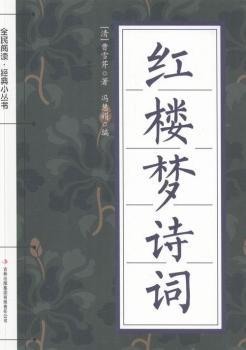 全民阅读·经典小丛书
[清]曹雪芹◎著 冯慧娟◎编
红楼梦诗词
吉林出版集团有限责任公司